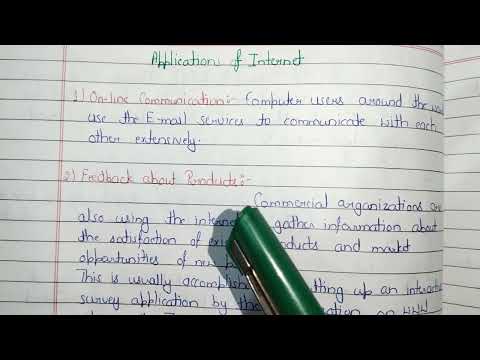 Application of Internet
1) On-line Communication:- Computer users around the
use the E-mail services to communicate with each
other extensively.
2) Feedback about Products:-
Commercial organizations are
also using the gather information about
the satisfaction of products and market
opportunities of
This is usually up an
survey application by the on WWW